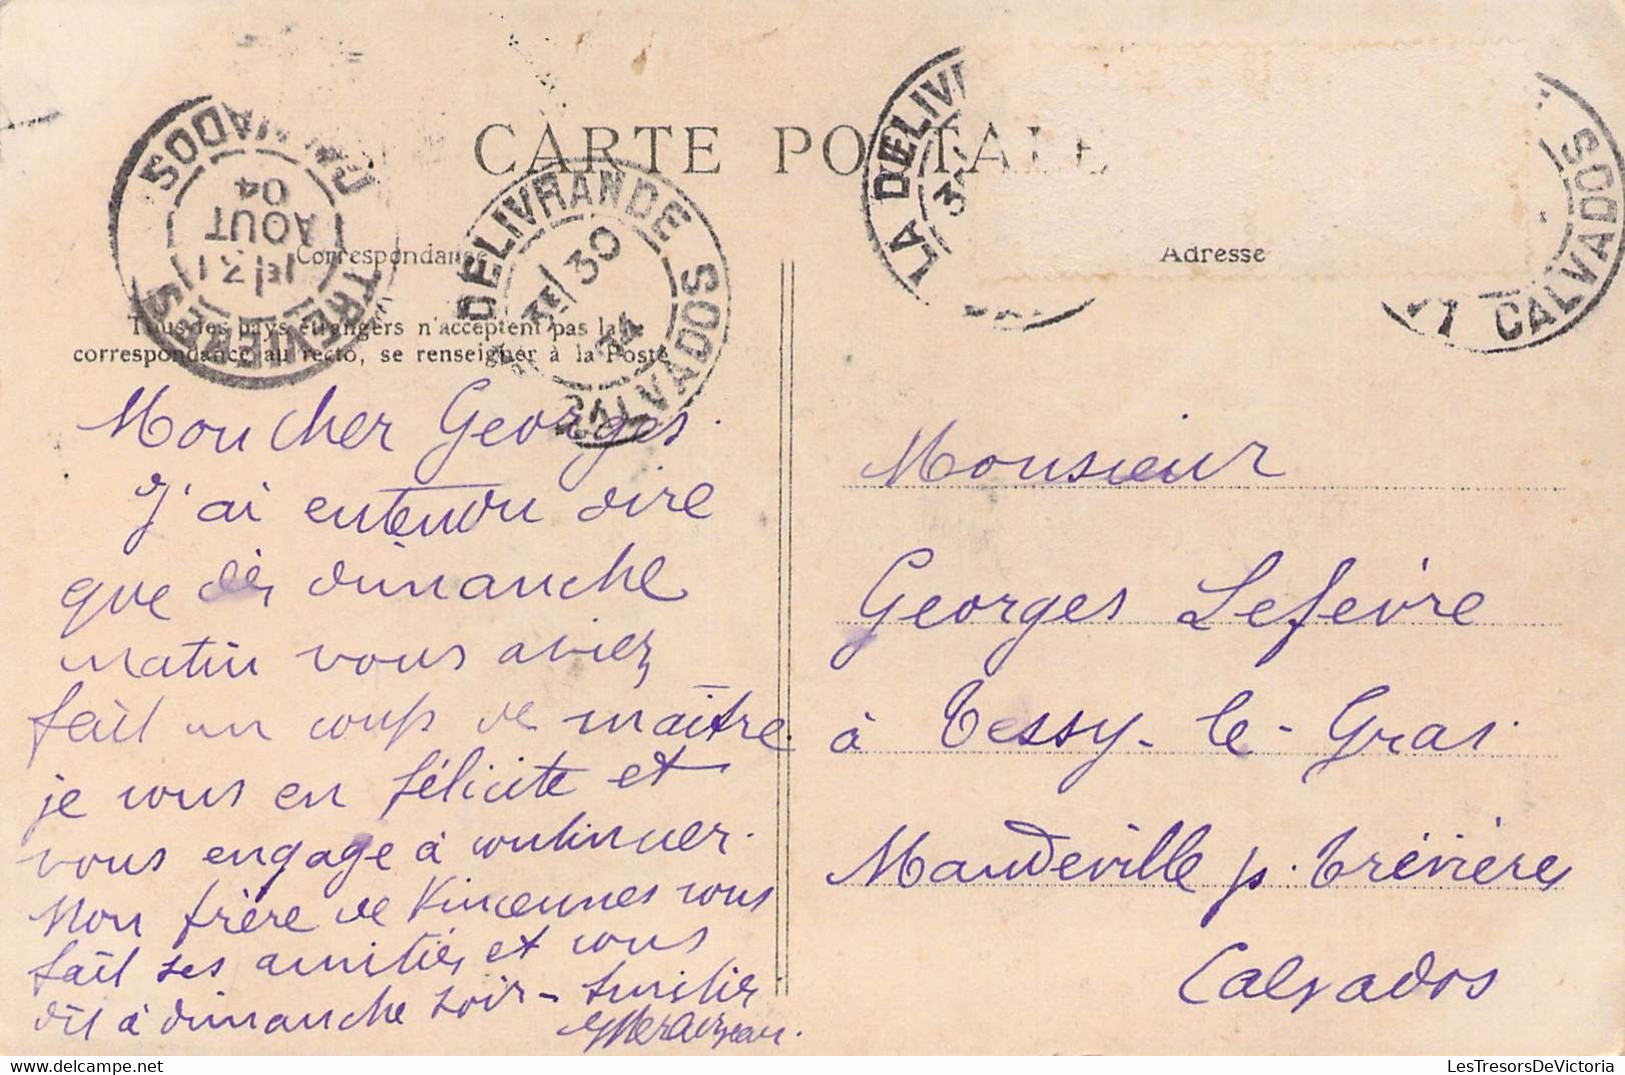 CARTE POSTALE
Correspondance
Adresse
Tous les pays étrangers n'acceptent pas la
correspondance au recto, se renseigner à la Poste
TREVIERES CALVADOS
1E/31
AOUT
04
DELIVRANDE CALVADOS
3E/30
04
LA DELIVR
CALVADOS
Mon cher Georges.
J'ai entendu dire
que dès dimanche
matin vous aviez
fait un coup de maître.
je vous en félicite et
vous engage à continuer.
Mon frère de Vincennes vous
fait ses amitiés et vous
dit à dimanche soir -
Monsieur
Georges Lefèvre
à Tessy-le-Gras.
Mandeville p. Trévières
Calvados
LesTresorsDeVictoria